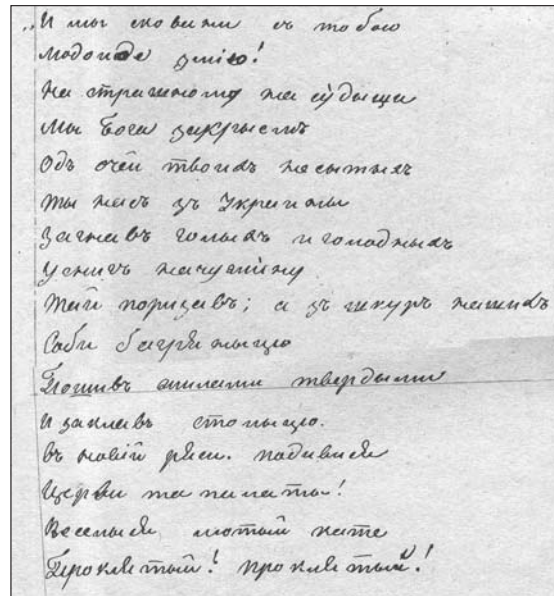 „И мы сковани съ тобою
Людоиде змію!
На страшному на судыщи
Мы Бога закрыемъ
Одъ очей твоихъ несытыхъ
Ты насъ зъ Украины
Загнавъ голыхъ и голодныхъ
У снигъ на чужину
Тай поризавъ; а зъ шкуръ нашихъ
Соби багряныцю
Пошивъ жилами твердыми
И заклавъ столыцю.
Въ новій ряси. подивися
Церкви та палаты!
Веселыся лютый кате
Проклятый! проклятый!